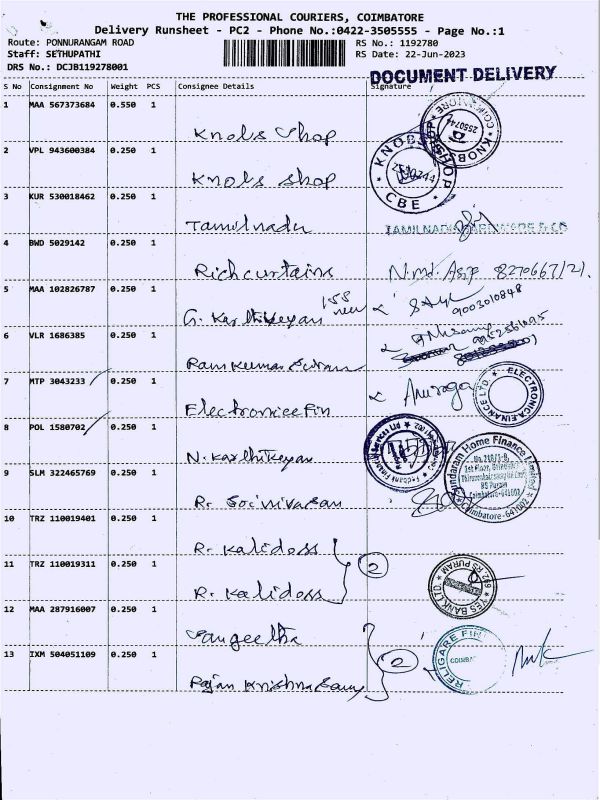 THE PROFESSIONAL COURIERS, COIMBATORE
Delivery Runsheet - PC2 - Phone No.:0422-3505555 - Page No.:1
Route: PONNURANGAM ROAD RS No.: 1192780
Staff: SETHUPATHI RS Date: 22-Jun-2023
DRS No.: DCJB119278001
DOCUMENT DELIVERY
S No Consignment No Weight PCS Consignee Details Signature
1 MAA 567373684 0.550 1
Knobs Shop
2 VPL 943600384 0.250 1
Knobs Shop
KNOBS SHOP
CBE
3 KUR 530018462 0.250 1
Tamilnadu
4 BWD 5029142 0.250 1
Richcurtains
5 MAA 102826787 0.250 1
G. Karthikeyan
9003010848
6 VLR 1686385 0.250 1
Ramkumar
7 MTP 3043233 0.250 1
Electronice Fin
ELECTRONICA FINANCE LTD.
8 POL 1580702 0.250 1
N. Karthikeyan
9 SLM 322465769 0.250 1
R. Srinivasan
Sundaram Home Finance Limited
RS Puram
Coimbatore-641002
Coimbatore - 641002
10 TRZ 110019401 0.250 1
R. Kalidoss
2
11 TRZ 110019311 0.250 1
R. Kalidoss
YES BANK LTD. RS PURAM
12 MAA 287916007 0.250 1
Sangeetha
2
RELIGARE FIN
13 IXM 504051109 0.250 1
Rajan Krishnasamy